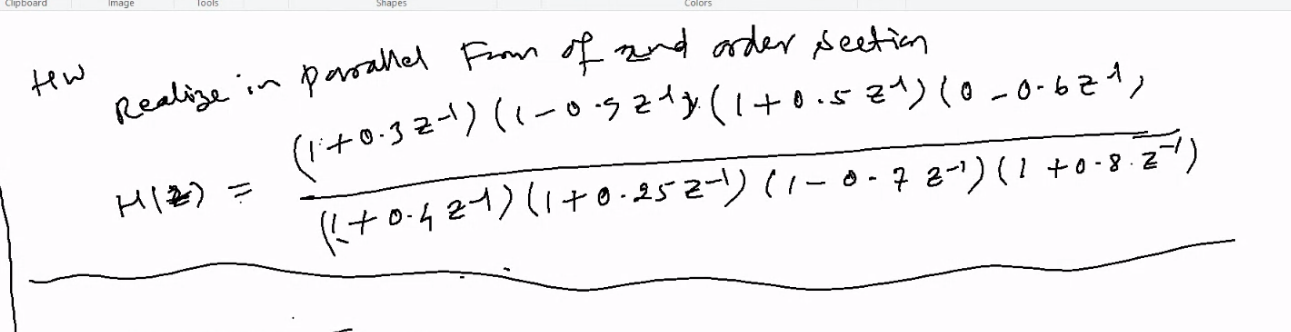 Clipboard Image Tools Shapes Colors
HW Realize in parallel Form of 2nd order section
H(z) = (1+0.3z^-1)(1-0.5z^-1)(1+0.5z^-1)(0-0.6z^-1)
(1+0.4z^-1)(1+0.25z^-1)(1-0.7z^-1)(1+0.8z^-1)